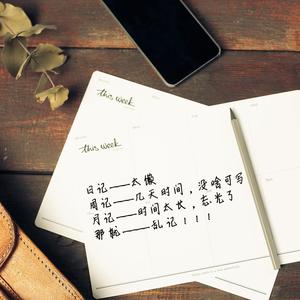 this week
this week
日记——太懒
周记——几天时间，没啥可写
月记——时间太长，忘光了
那就——乱记！！！